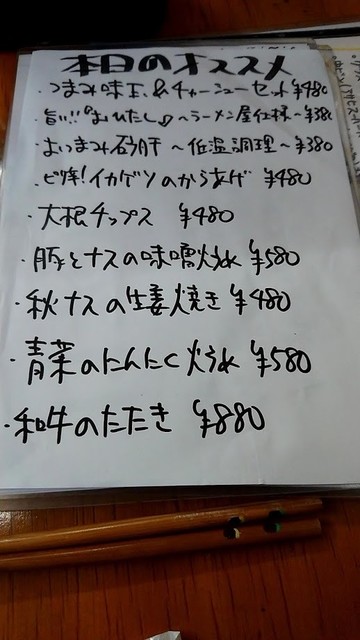 本日のオススメ
・つまみ味玉&チャーシューセット¥480
・旨い!!『おひたし』〜ラーメン屋仕様〜¥380
・よいつまみ砂肝〜低温調理〜¥380
・ビ烽!イカゲソのからあげ ¥480
・大根チップス ¥480
・豚とナスの味噌炒め ¥580
・秋ナスの生姜焼き ¥480
・青菜のにんにく炒め ¥580
・和牛のたたき ¥880